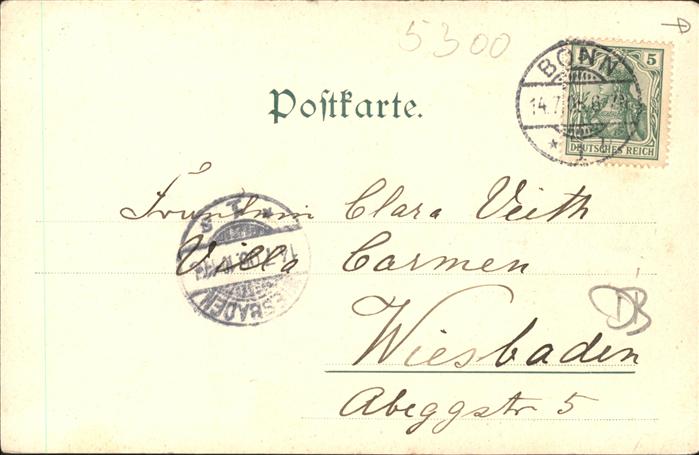 5300
D
5
BONN
14.7
* 1
DEUTSCHES REICH
Postkarte.
Fräulein Clara Veith
Villa Carmen
Wiesbaden
Abeggstr 5
WIESBADEN
DB